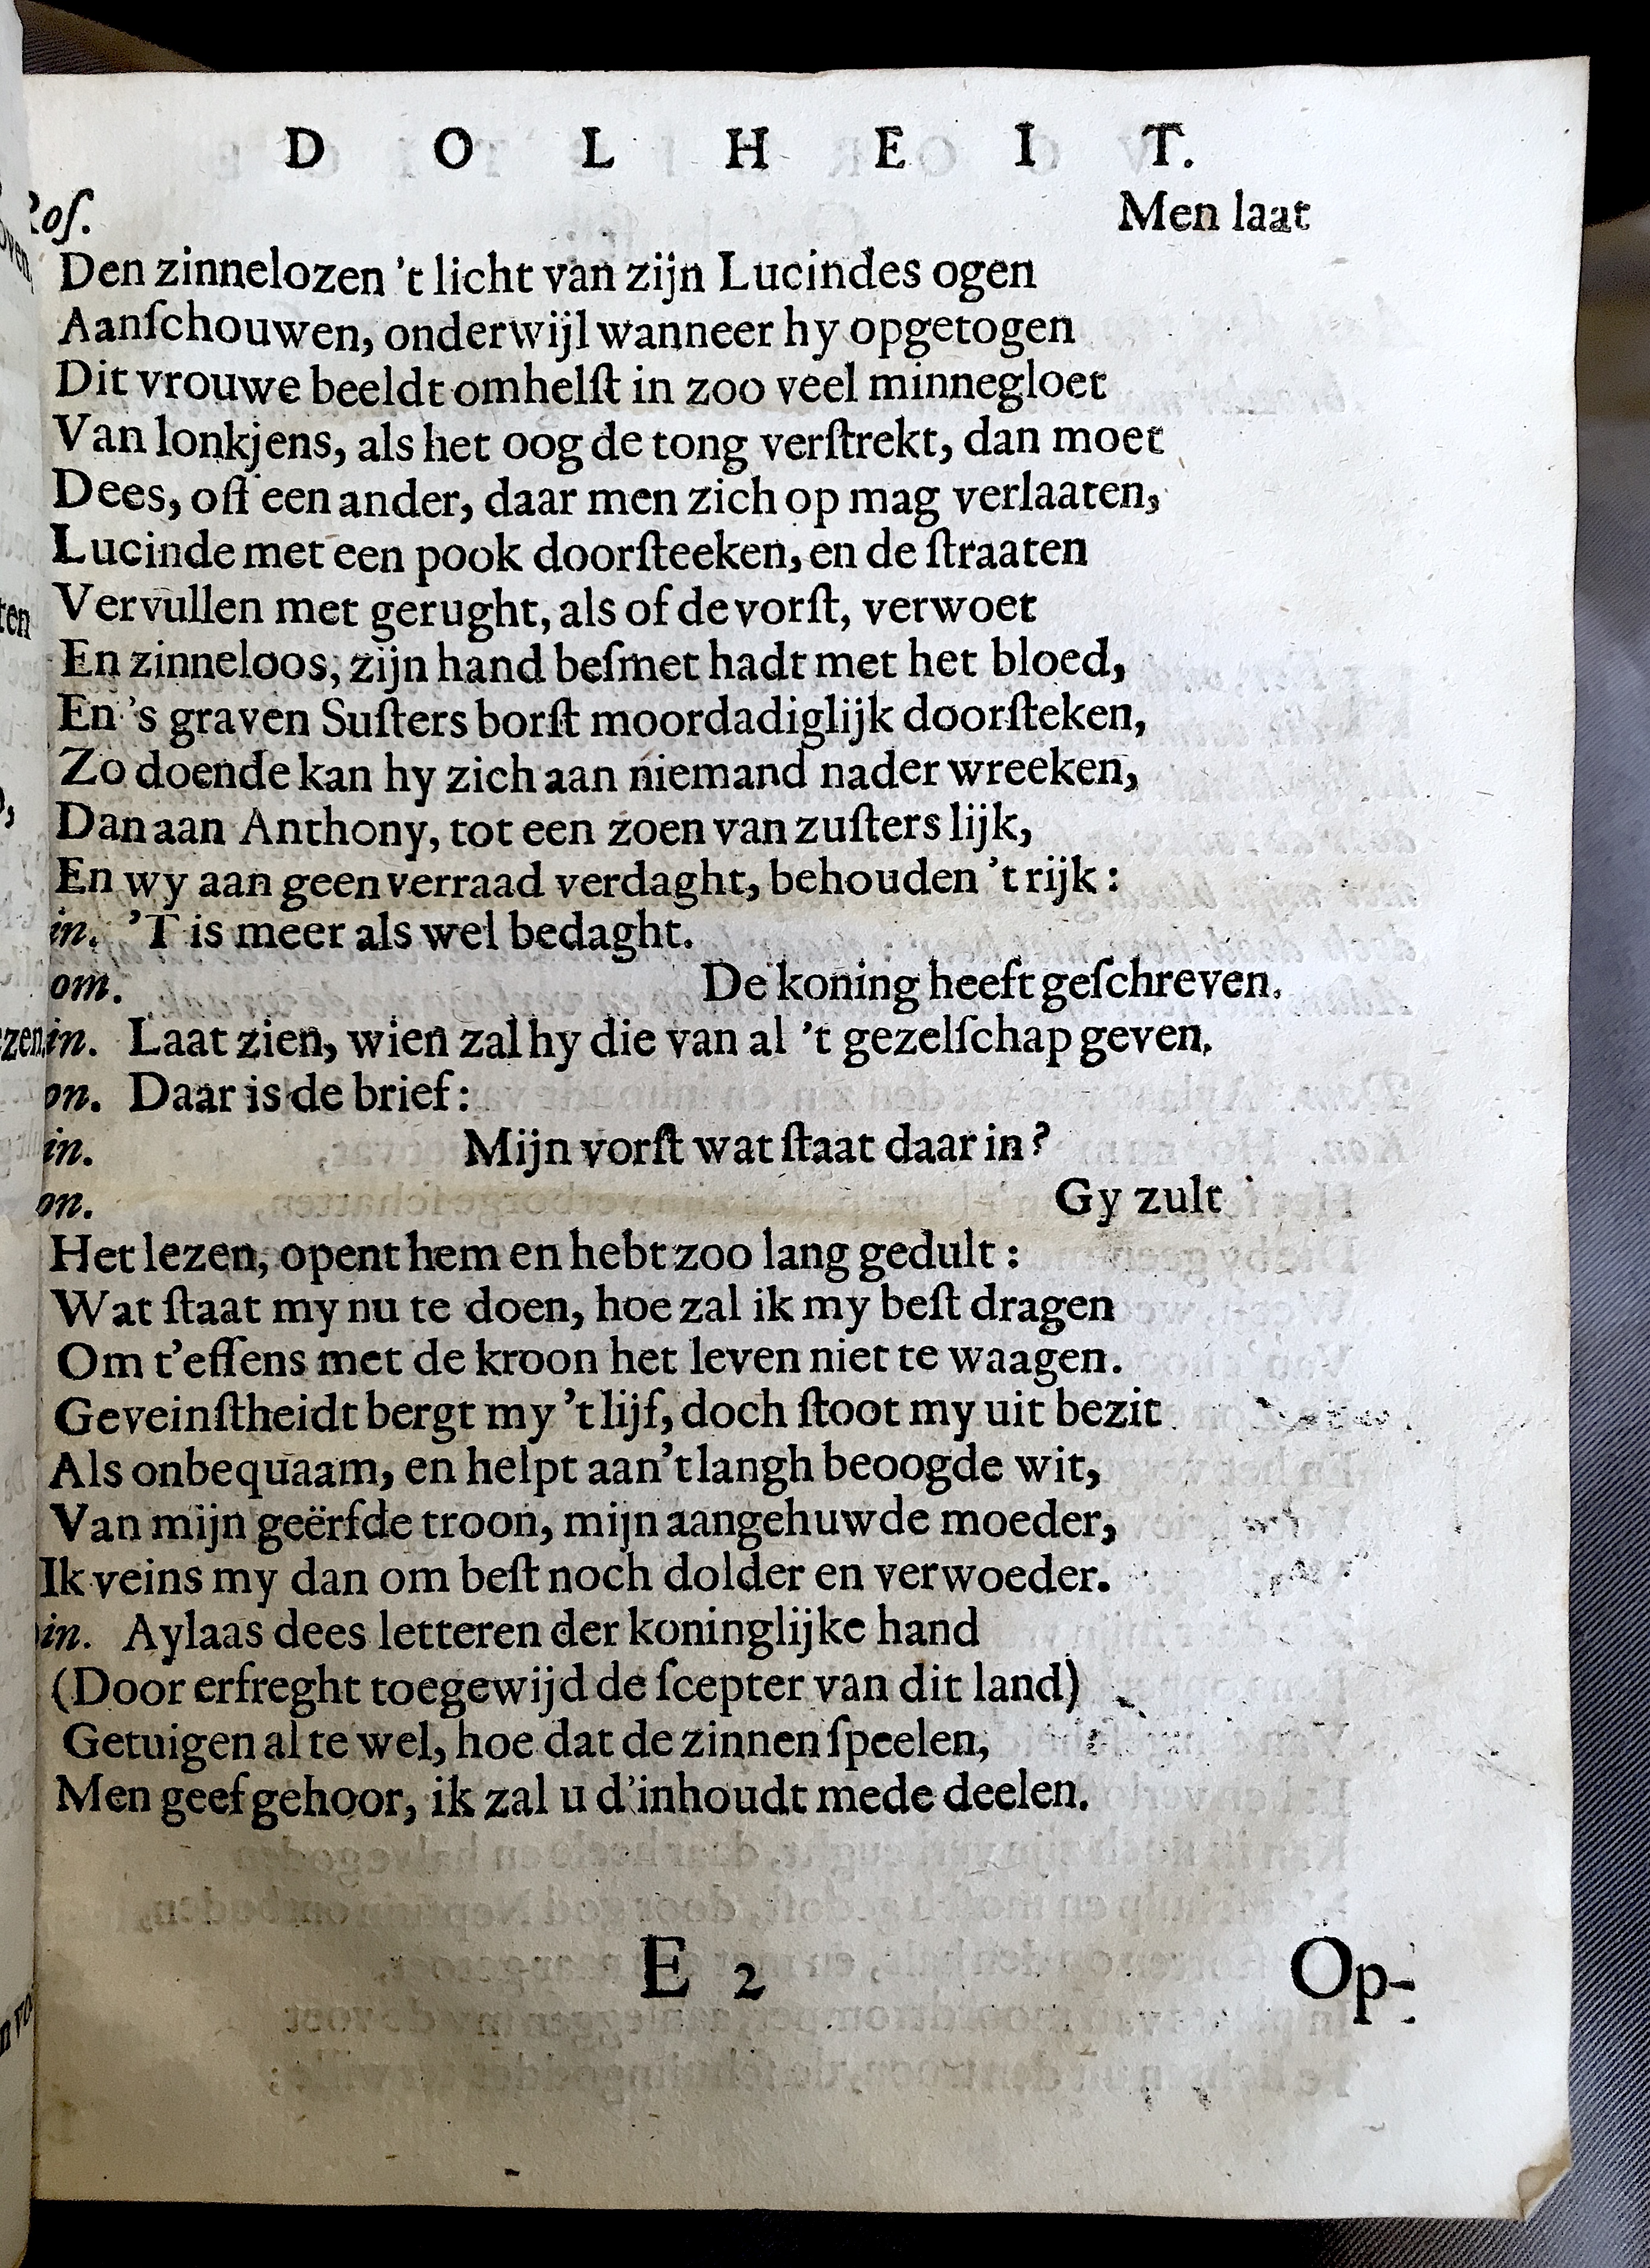 D O L H E I T.
Roſ. Men laat
Den zinnelozen 't licht van zijn Lucindes ogen
Aanſchouwen, onderwijl wanneer hy opgetogen
Dit vrouwe beeldt omhelſt in zoo veel minnegloet
Van lonkjens, als het oog de tong verſtrekt, dan moet
Dees, oft een ander, daar men zich op mag verlaaten,
Lucinde met een pook doorſteeken, en de ſtraaten
Vervullen met gerught, als of de vorſt, verwoet
En zinneloos, zijn hand beſmet hadt met het bloed,
En 's graven Suſters borſt moordadiglijk doorſteken,
Zo doende kan hy zich aan niemand nader wreeken,
Dan aan Anthony, tot een zoen van zuſters lijk,
En wy aan geen verraad verdaght, behouden 't rijk:
in. 'T is meer als wel bedaght.
om. De koning heeft geſchreven.
in. Laat zien, wien zal hy die van al 't gezelſchap geven.
on. Daar is de brief:
in. Mijn vorſt wat ſtaat daar in?
on. Gy zult
Het lezen, opent hem en hebt zoo lang gedult:
Wat ſtaat my nu te doen, hoe zal ik my beſt dragen
Om t'effens met de kroon het leven niet te waagen.
Geveinſtheidt bergt my 't lijf, doch ſtoot my uit bezit
Als onbequaam, en helpt aan 't langh beoogde wit,
Van mijn geërfde troon, mijn aangehuwde moeder,
Ik veins my dan om beſt noch dolder en verwoeder.
in. Aylaas dees letteren der koninglijke hand
(Door erfreght toegewijd de ſcepter van dit land)
Getuigen al te wel, hoe dat de zinnen ſpeelen,
Men geef gehoor, ik zal u d'inhoudt mede deelen.
E 2 Op-